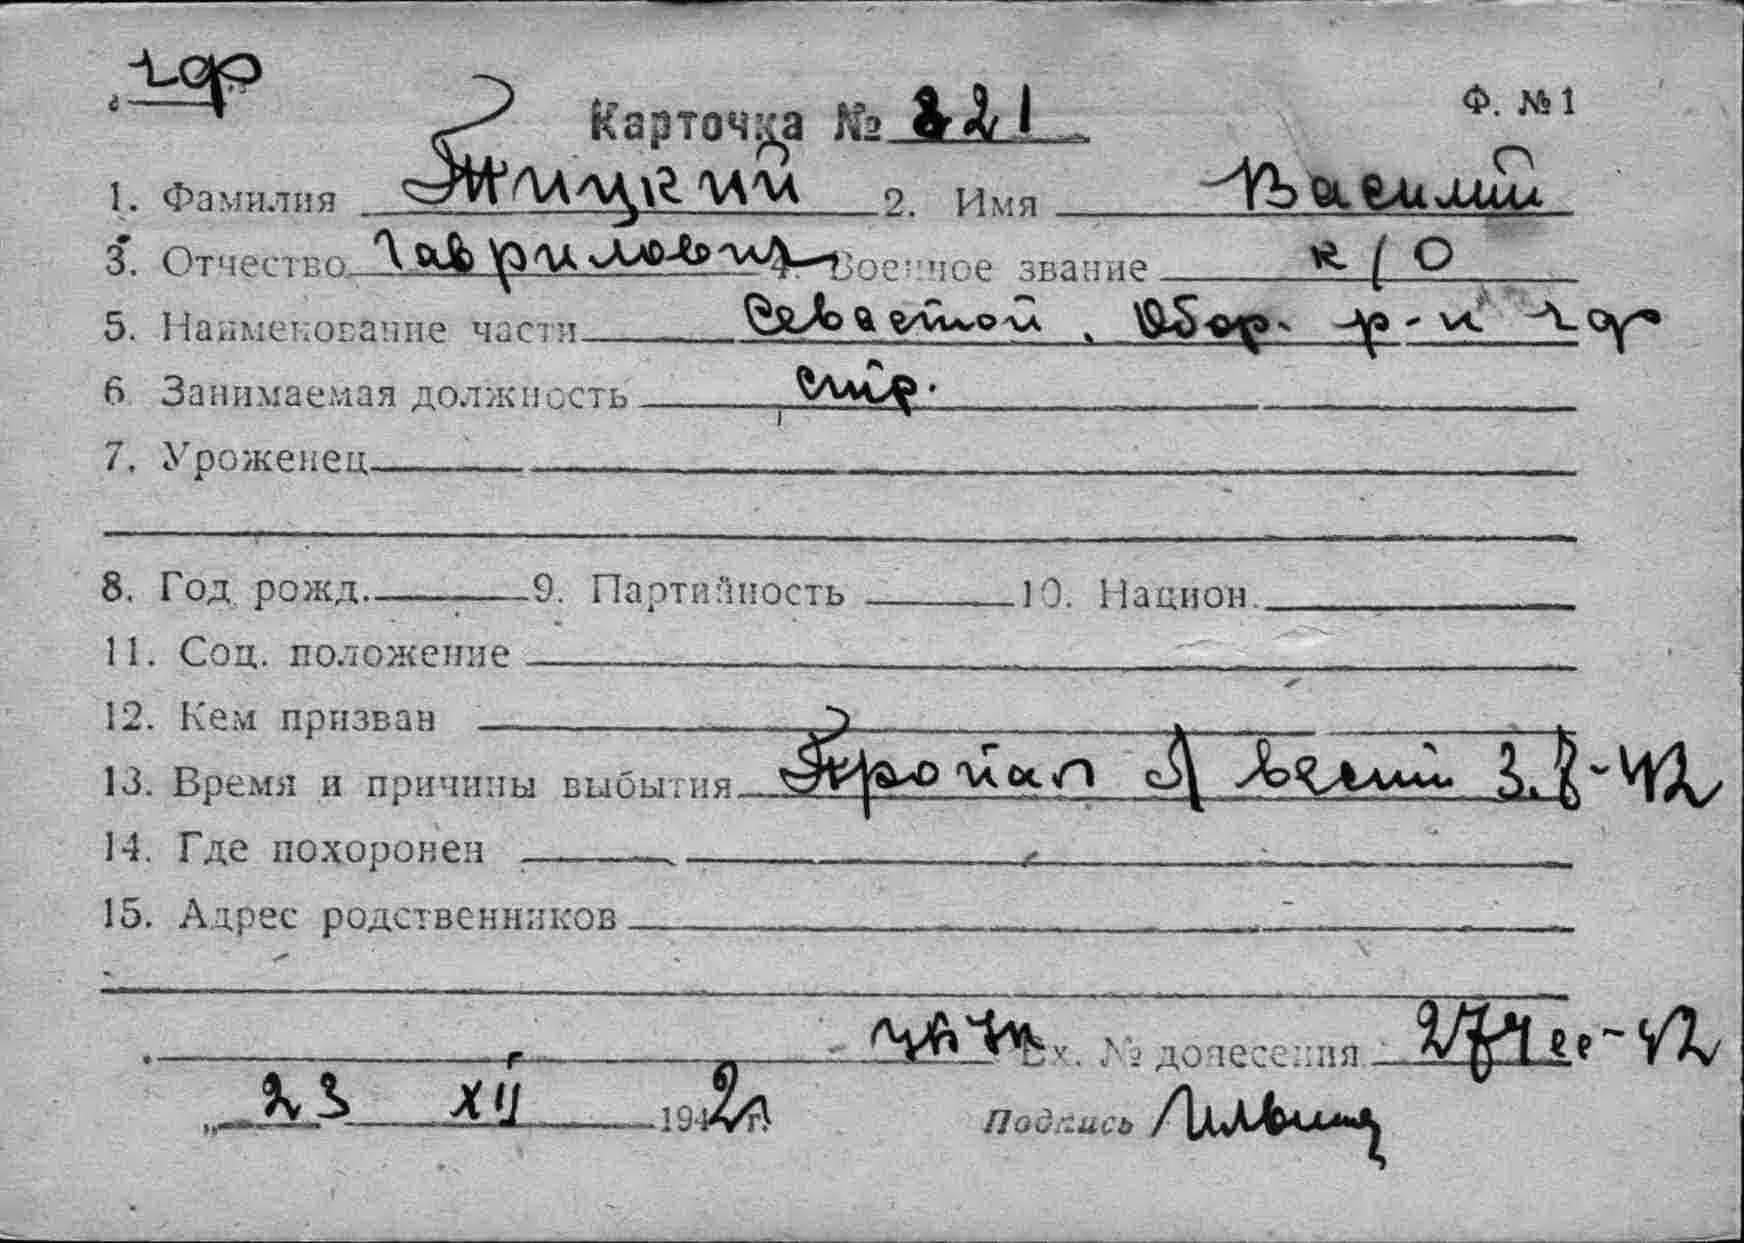 чф
Карточка № 821
Ф. №1
1. Фамилия Тицкий 2. Имя Василий
3. Отчество Гаврилович 4. Военное звание к/о
5. Наименование части Севастоп. Обор. р-н чф
6. Занимаемая должность стр.
7. Уроженец
8. Год рожд. 9. Партийность 10. Национ.
11. Соц. положение
12. Кем призван
13. Время и причины выбытия Пропал б/вести 3.7-42
14. Где похоронен
15. Адрес родственников
Вх. № донесения 279сс-42
„23 XII 1942г.
Подпись